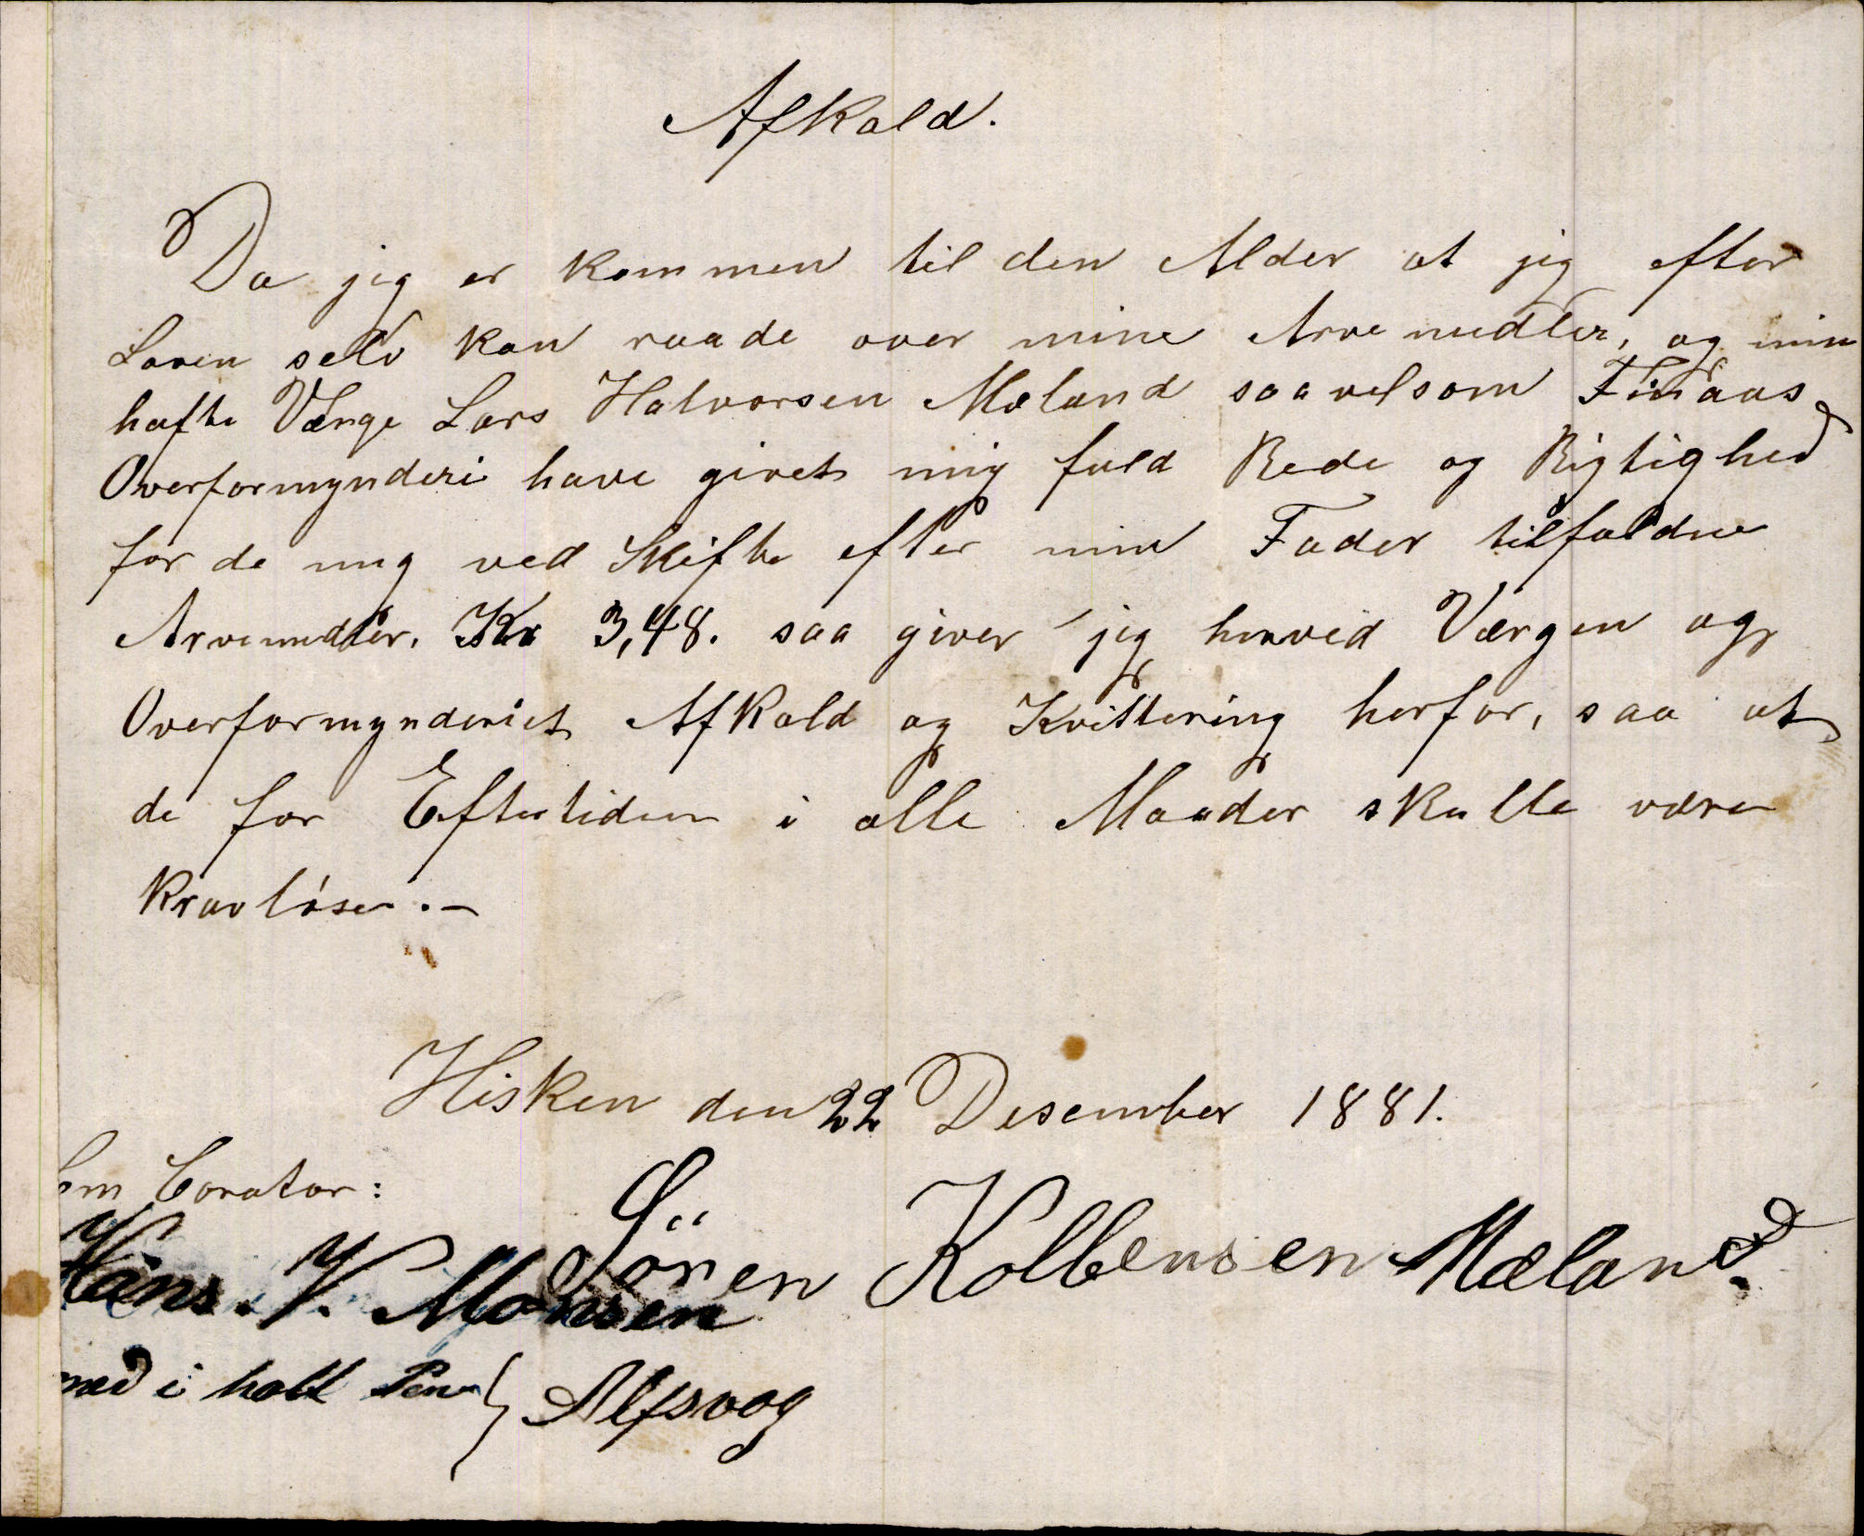 Afkald.
Da jeg er kommen til den Alder at jeg efter
Loven selv kan raade over mine Arvemidler, og min
hafte Værge Lars Halvorsen Mæland saavelsom Finaas
Overformynderi have givet mig fuld Rede og Rigtighed
for de mig ved Skifte efter min Fader tilfaldne
Arvemidler. Kr 3,48. saa giver jeg herved Værgen og
Overformynderiet Afkald og Kvittering herfor, saa at
de for Eftertiden i alle Maader skulle være
kravløse.-
Hisken den 22 Desember 1881.
Som Corator:
Sören Kolbensen Mæland.
Hans V. Monsen
med i holt Pen } Alfsvog